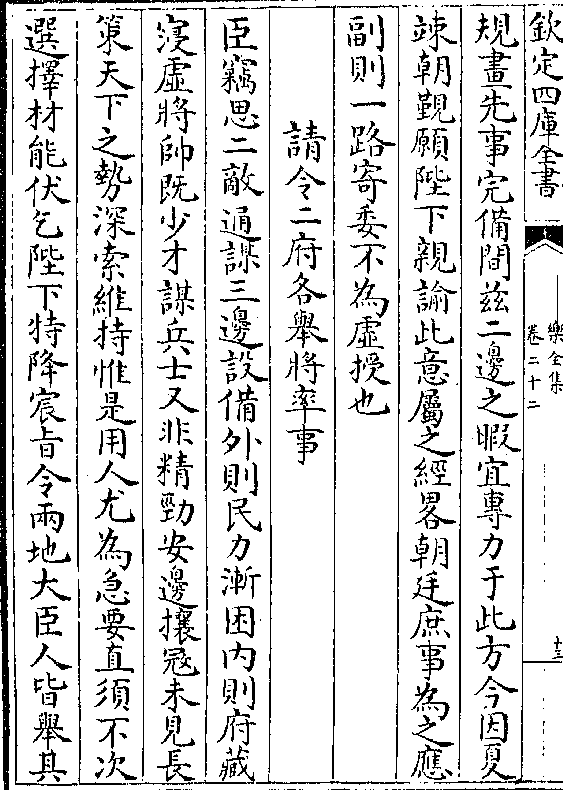 欽定四庫全書
樂全集
卷二十二
十三
規畫先事完備間玆二邊之暇宜專力于此方今因夏
竦朝覲願陛下親諭此意屬之經畧朝廷庶事為之應
副則一路寄委不為虛授也
請令二府各舉將率事
臣竊思二敵通謀三邊設備外則民力漸困内則府藏
寖虛將帥既少才謀兵士又非精勁安邊攘冦未見長
策天下之勢深索維持惟是用人尤為急要直須不次
選擇材能伏乞陛下特降宸㫖令兩地大臣人皆舉其